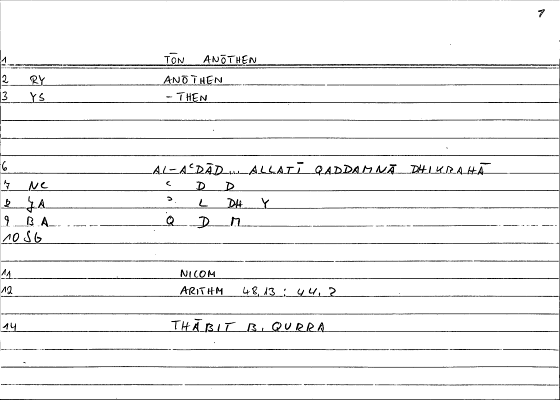 1
1 TŌN ANŌTHEN
2 RY ANŌTHEN
3 YS -THEN
6 AL-AʿDĀD... ALLATĪ QADDAMNĀ DHIKRAHĀ
7 NC ʿ D D
8 JA ʾ L DH Y
9 BA Q D M
10 SG
11 NICOM
12 ARITHM 48,13 : 44,2
14 THĀBIT B. QURRA